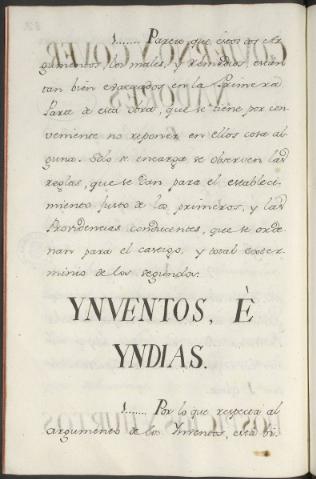 1....... Parece, que estos dos Ar-
gumentos, los males, y remedios estan
tan bien evaquados en la Primera
Parte de esta obra, que se tiene por con-
veniente no reponer en ellos cosa al-
guna. Solo se encarga se observen las
reglas, que se dan para el estableci-
miento justo de los primeros, y las
Providencias conducentes, que se orde-
nan para el castigo, y total exter-
minio de los segundos.
YNVENTOS, È
YNDIAS.
1....... Por lo que respecta al
argumento de los Ynventos, està bi-